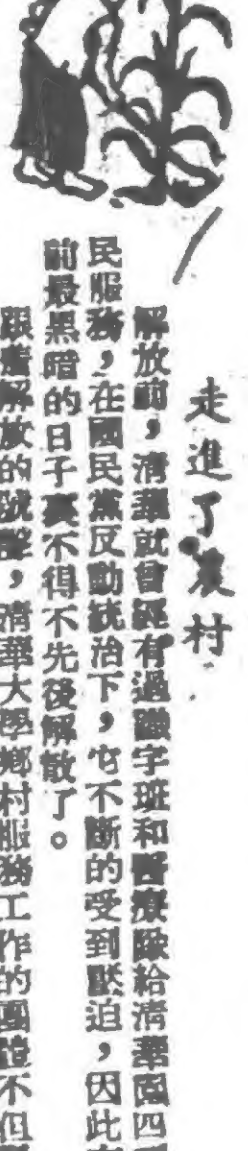 走進了農村
解放前，清華就曾經有過識字班和醫療隊給清華園四
民服務，在國民黨反動統治下，它不斷的受到壓迫，因此
前最黑暗的日子裏不得不先後解散了。
跟着解放的號聲，清華大學鄉村服務工作的團體不但